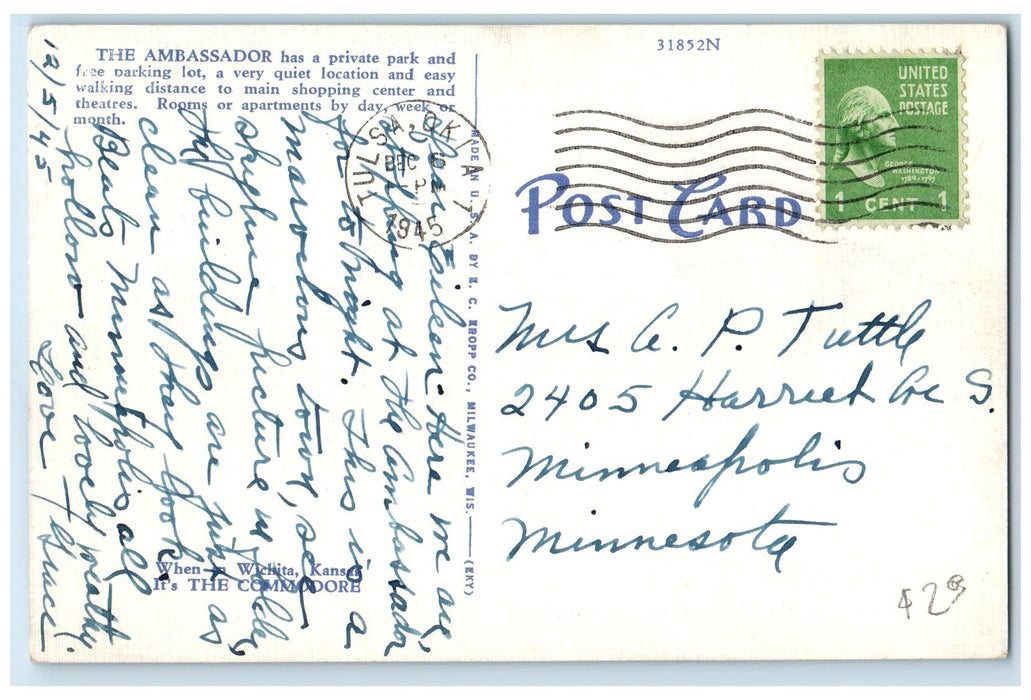 THE AMBASSADOR has a private park and
free parking lot, a very quiet location and easy
walking distance to main shopping center and
theatres. Rooms or apartments by day, week or
month.
12/5/45
Dear Eileen: Here we are,
staying at the Ambassador
for tonight. This is a
marvelous town, see
skyline picture
The buildings are just as
clean as they look.
Beats Minneapolis all
hollow and lovely weather.
Love - Grace
When in Wichita, Kansas
It's THE COMMODORE
MADE IN U. S. A. BY E. C. KROPP CO., MILWAUKEE, WIS. (EKY)
31852N
TULSA, OKLA
DEC 6
PM
1945
UNITED
STATES
POSTAGE
GEORGE
WASHINGTON
1789-1797
1 CENT 1
POST CARD
Mrs A. P. Tuttle
2405 Harriet Ave S.
Minneapolis
Minnesota